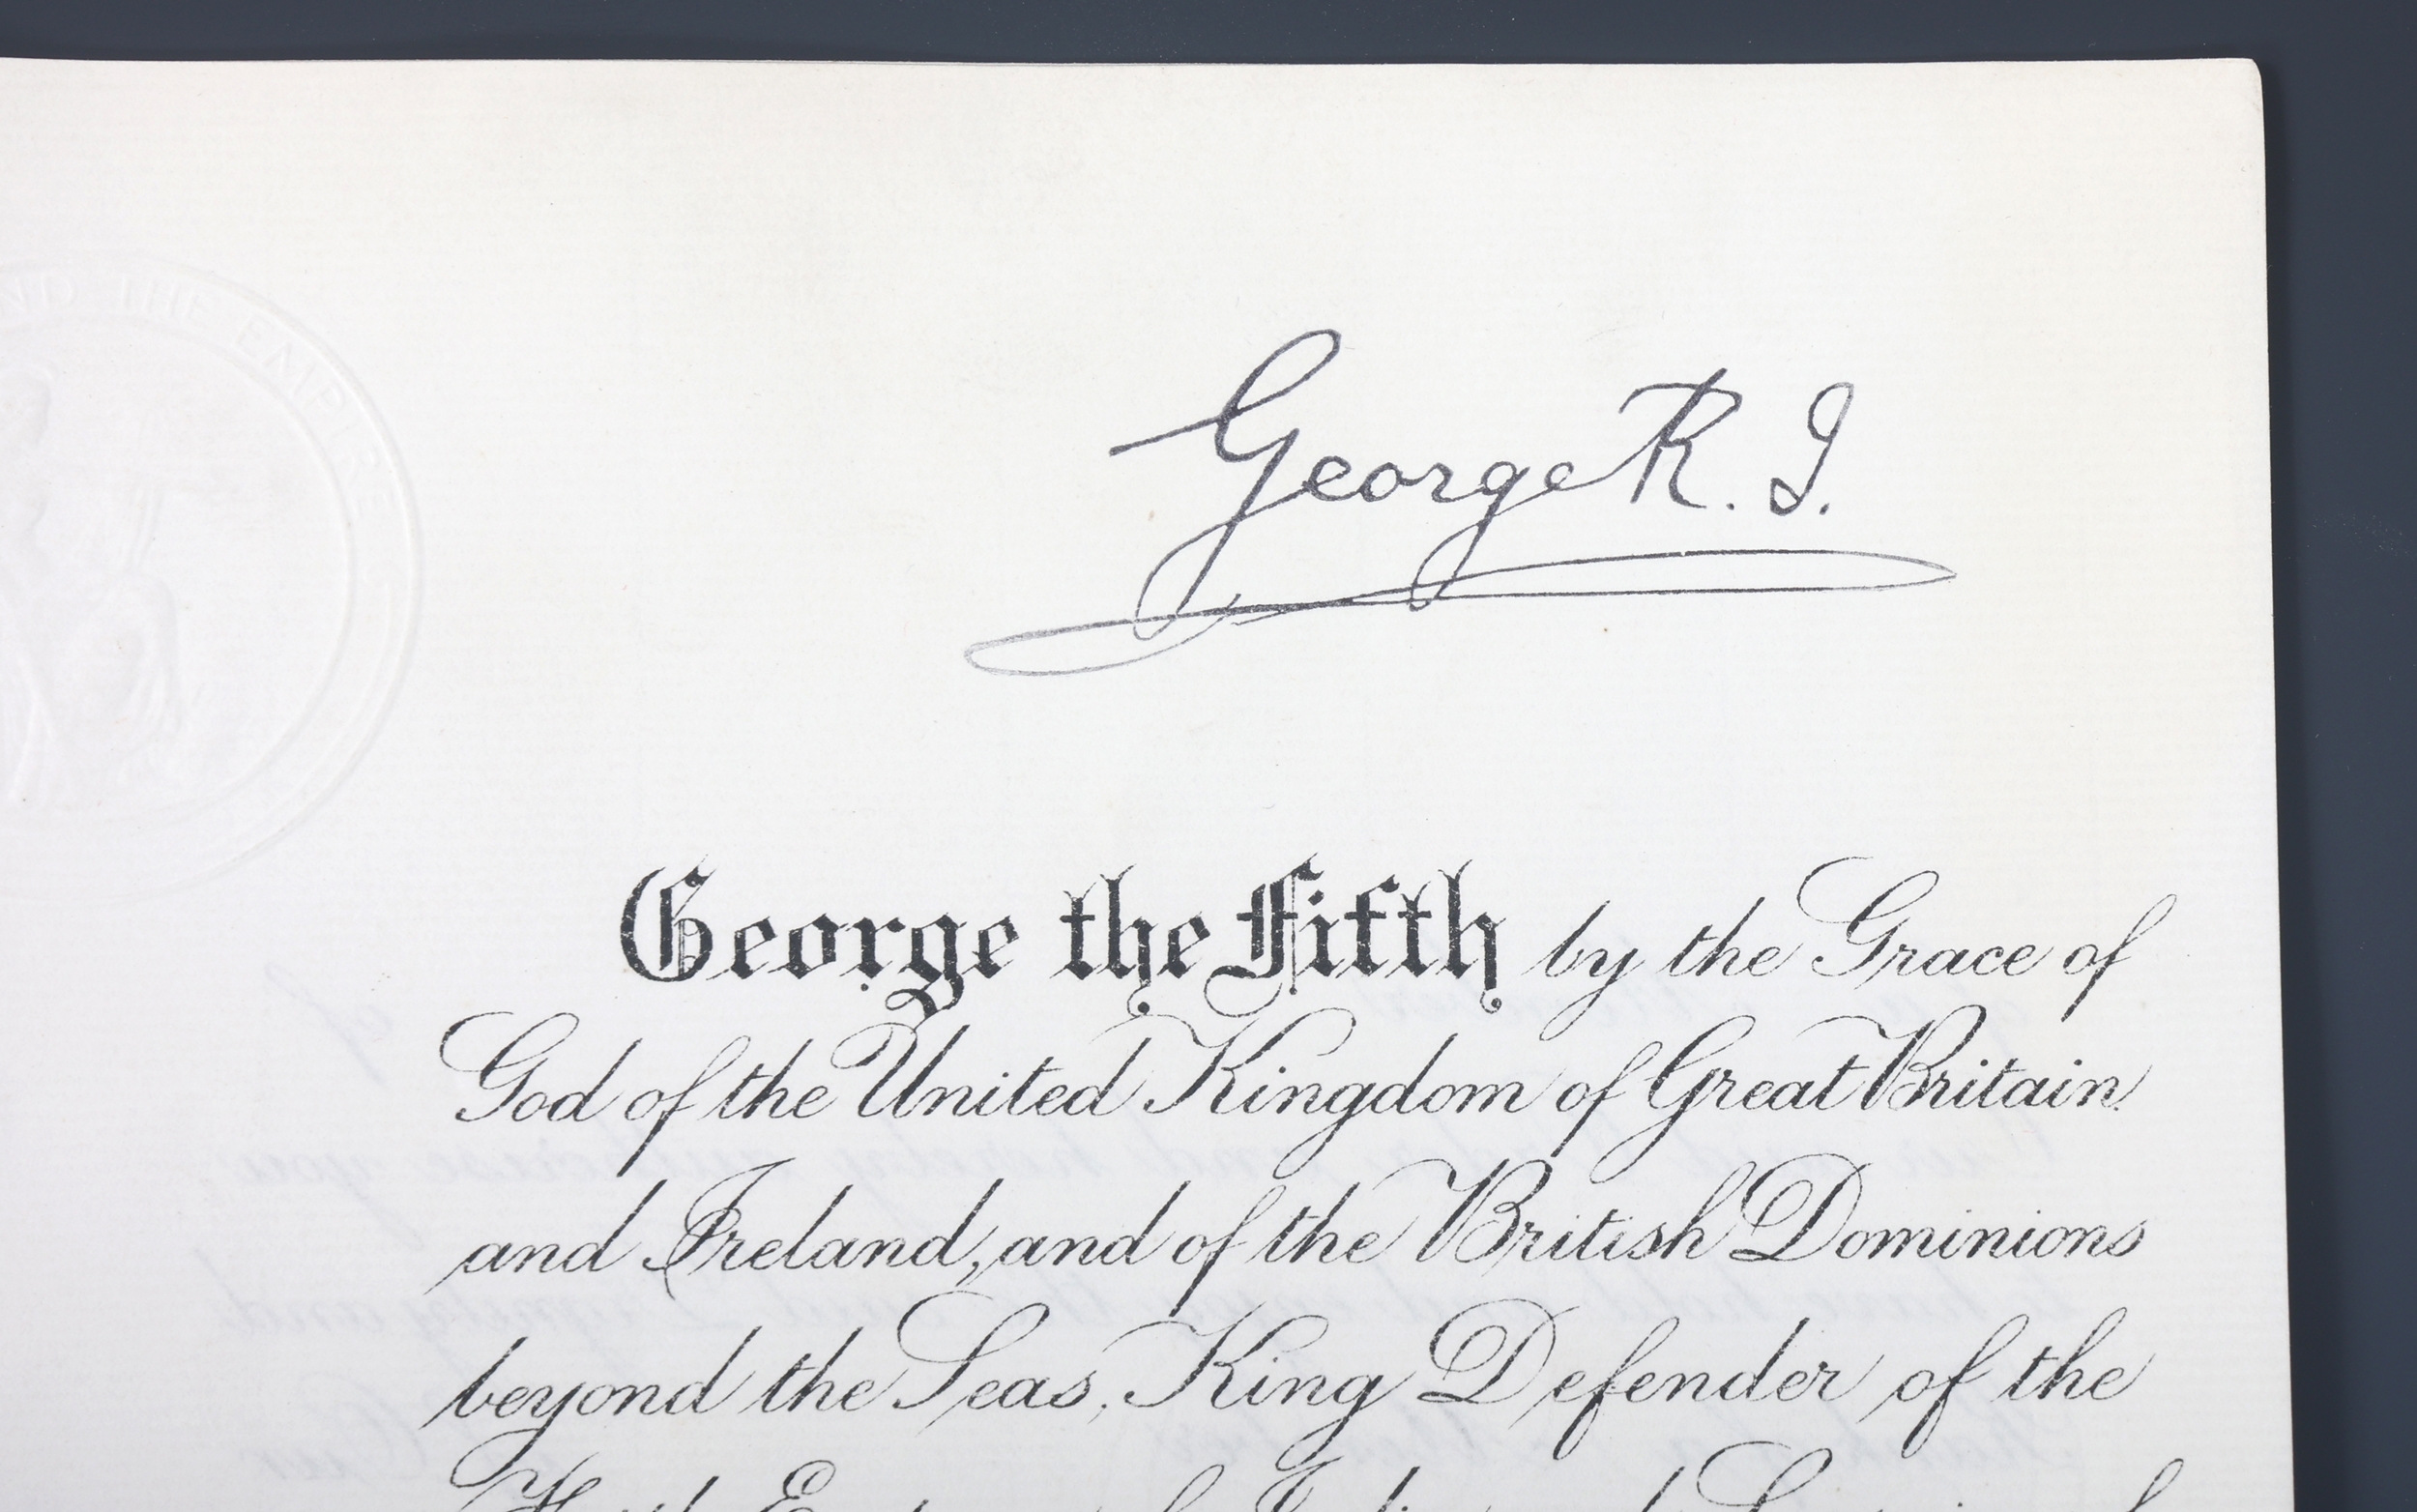 AND THE EMPIRE
George R. I.
George the Fifth by the Grace of
God of the United Kingdom of Great Britain
and Ireland, and of the British Dominions
beyond the Seas, King Defender of the